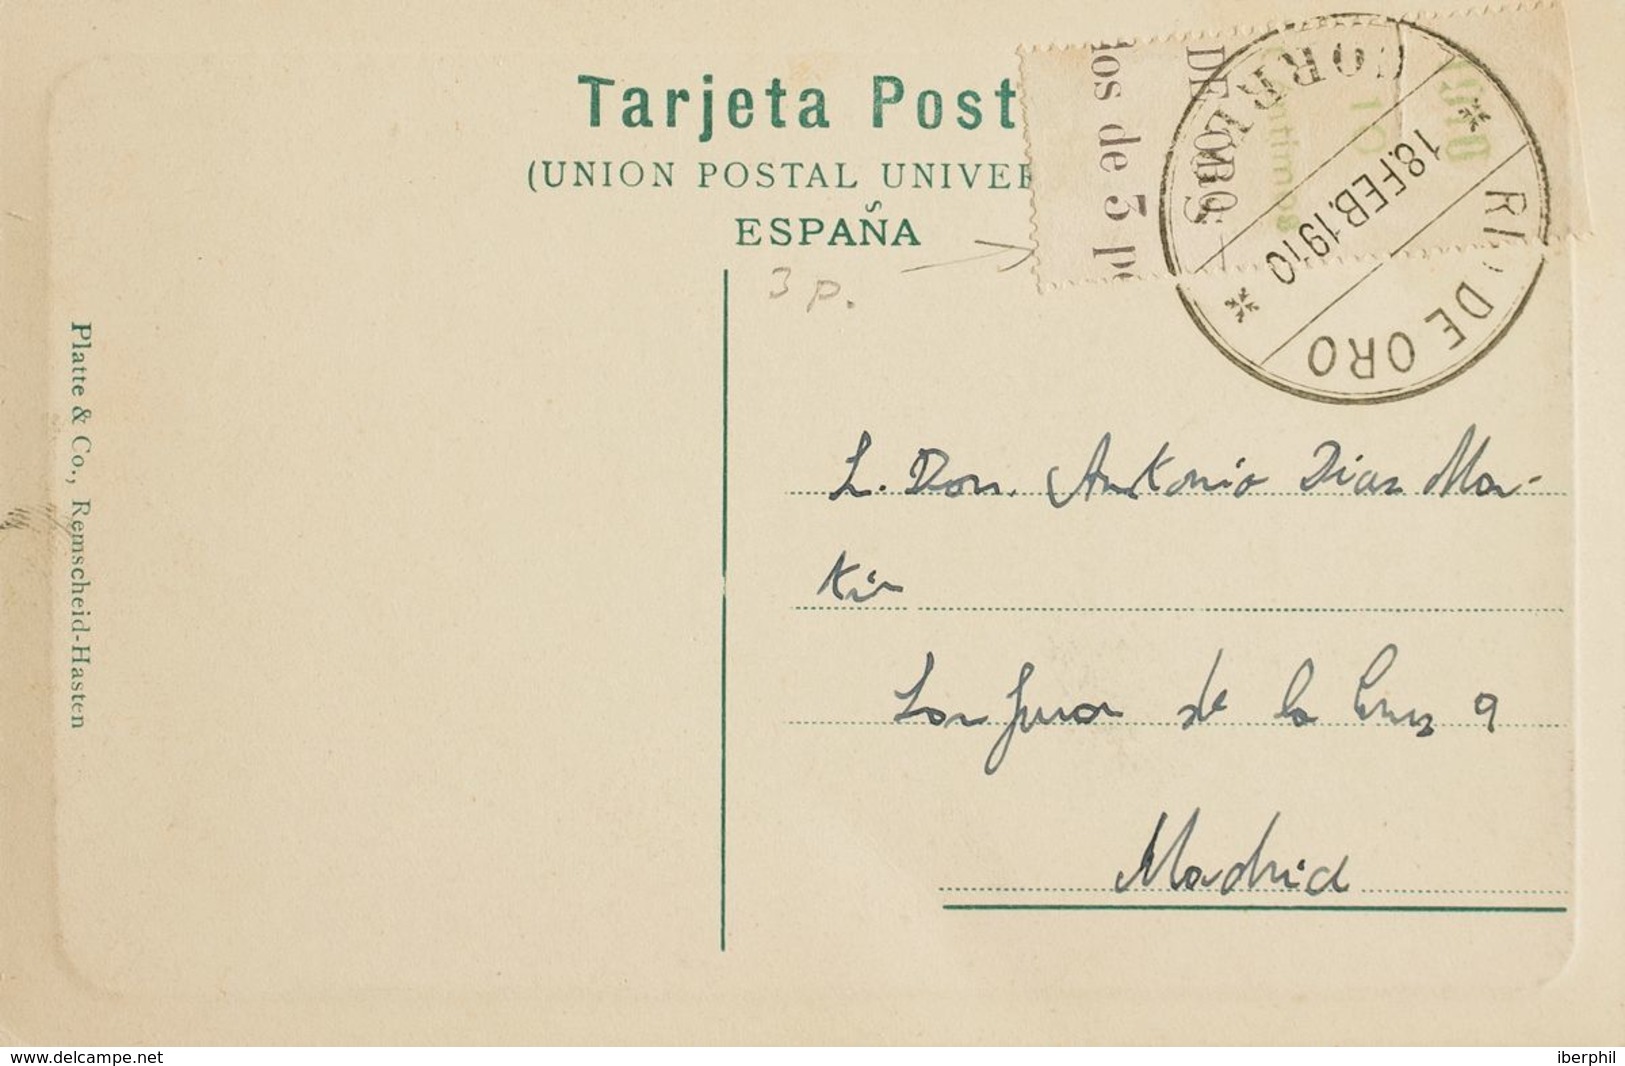 Tarjeta Post
(UNION POSTAL UNIVER
ESPAÑA
3 p.
los de 5 p
DE ORO
10
CORREOS
18.FEB.1910
RIO DE ORO
Platte & Co., Remscheid-Hasten
Don Antonio Diaz Mar-
tin
San Juan de la Cruz 9
Madrid
www.delcampe.net
iberphil